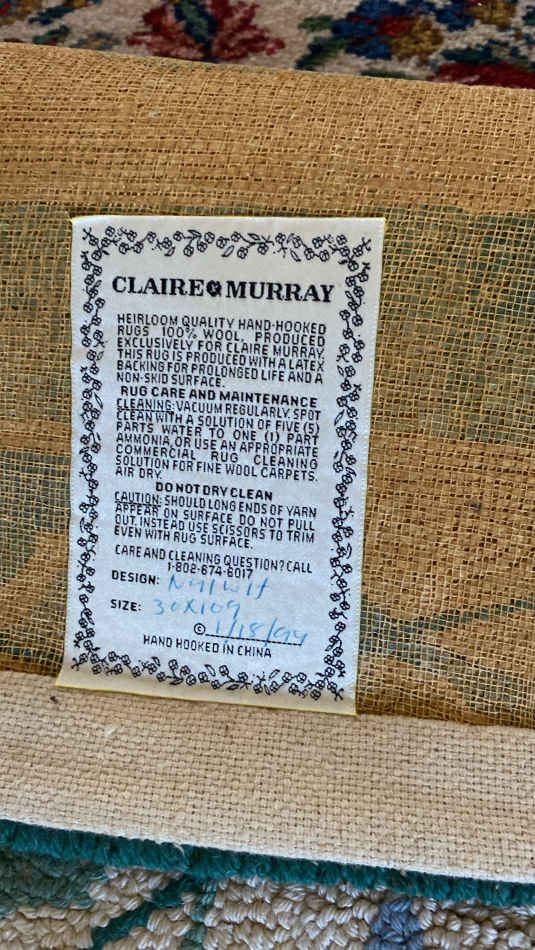 CLAIRE MURRAY
HEIRLOOM QUALITY HAND-HOOKED
RUGS 100% WOOL, PRODUCED
EXCLUSIVELY FOR CLAIRE MURRAY.
THIS RUG IS PRODUCED WITH A LATEX
BACKING FOR PROLONGED LIFE AND A
NON-SKID SURFACE.
RUG CARE AND MAINTENANCE
CLEANING: VACUUM REGULARLY. SPOT
CLEAN WITH A SOLUTION OF FIVE (5)
PARTS WATER TO ONE (1) PART
AMMONIA, OR USE AN APPROPRIATE
COMMERCIAL RUG CLEANING
SOLUTION FOR FINE WOOL CARPETS.
AIR DRY.
DO NOT DRY CLEAN
CAUTION: SHOULD LONG ENDS OF YARN
APPEAR ON SURFACE, DO NOT PULL
OUT. INSTEAD USE SCISSORS TO TRIM
EVEN WITH RUG SURFACE.
CARE AND CLEANING QUESTION? CALL
1-802-674-6017
DESIGN:
SIZE: 30X109
© 1/18/94
HAND HOOKED IN CHINA